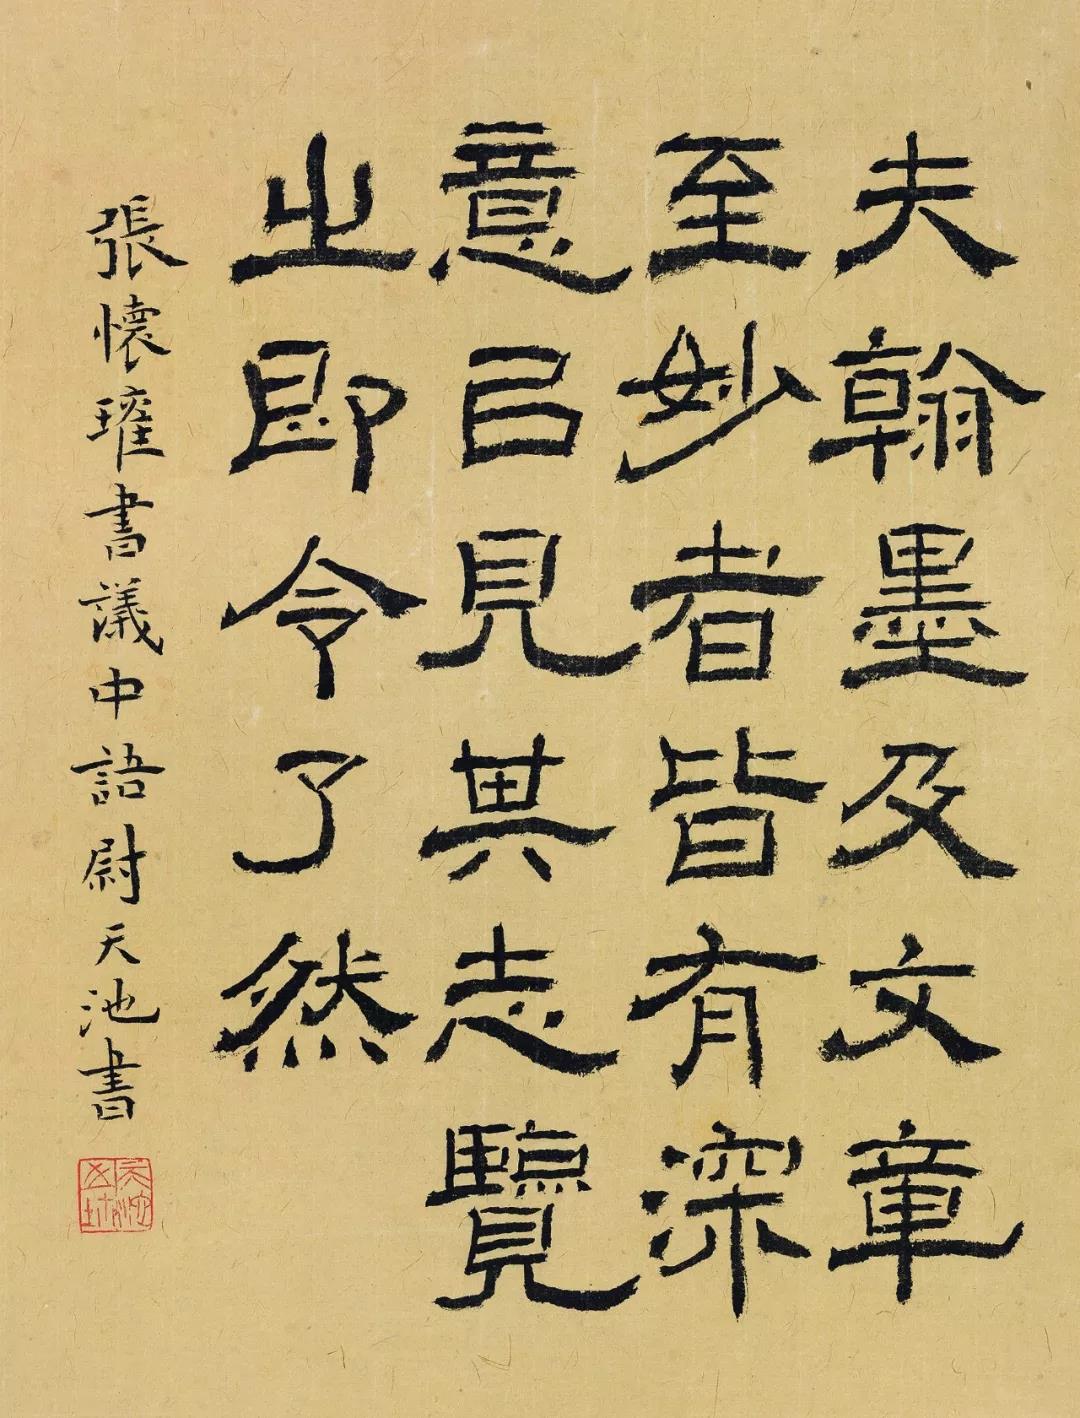 夫翰墨及文章
至妙者皆有深
意㠯見其志覽
之即令了然
張懷瓘書議中語尉天池書